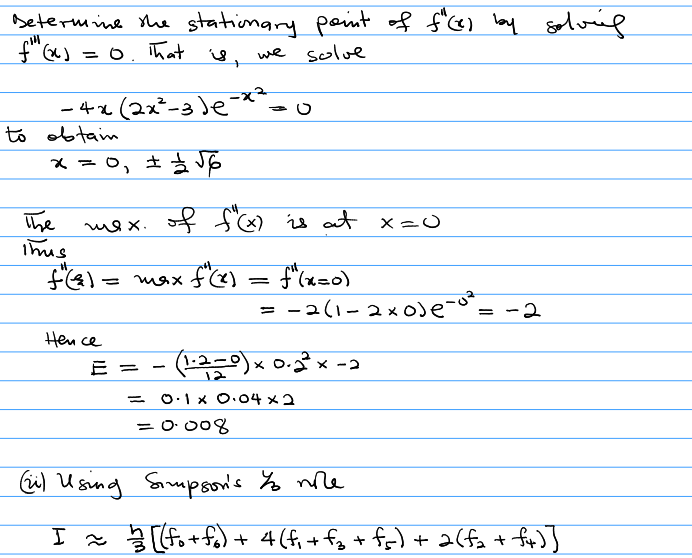 Determine the stationary point of f''(x) by solving
f'''(x) = 0. That is, we solve
-4x(2x²-3)e^{-x²} = 0
to obtain
x = 0, ± 1/2 √6
The max. of f''(x) is at x=0
Thus
f''(ξ) = max f''(x) = f''(x=0)
= -2(1-2×0)e^{-0²} = -2
Hence
E = -((1.2-0)/12) × 0.2² × -2
= 0.1 × 0.04 × 2
= 0.008
(ii) Using Simpson's 1/3 rule
I ≈ h/3 [(f₀+f₆) + 4(f₁+f₃+f₅) + 2(f₂+f₄)]